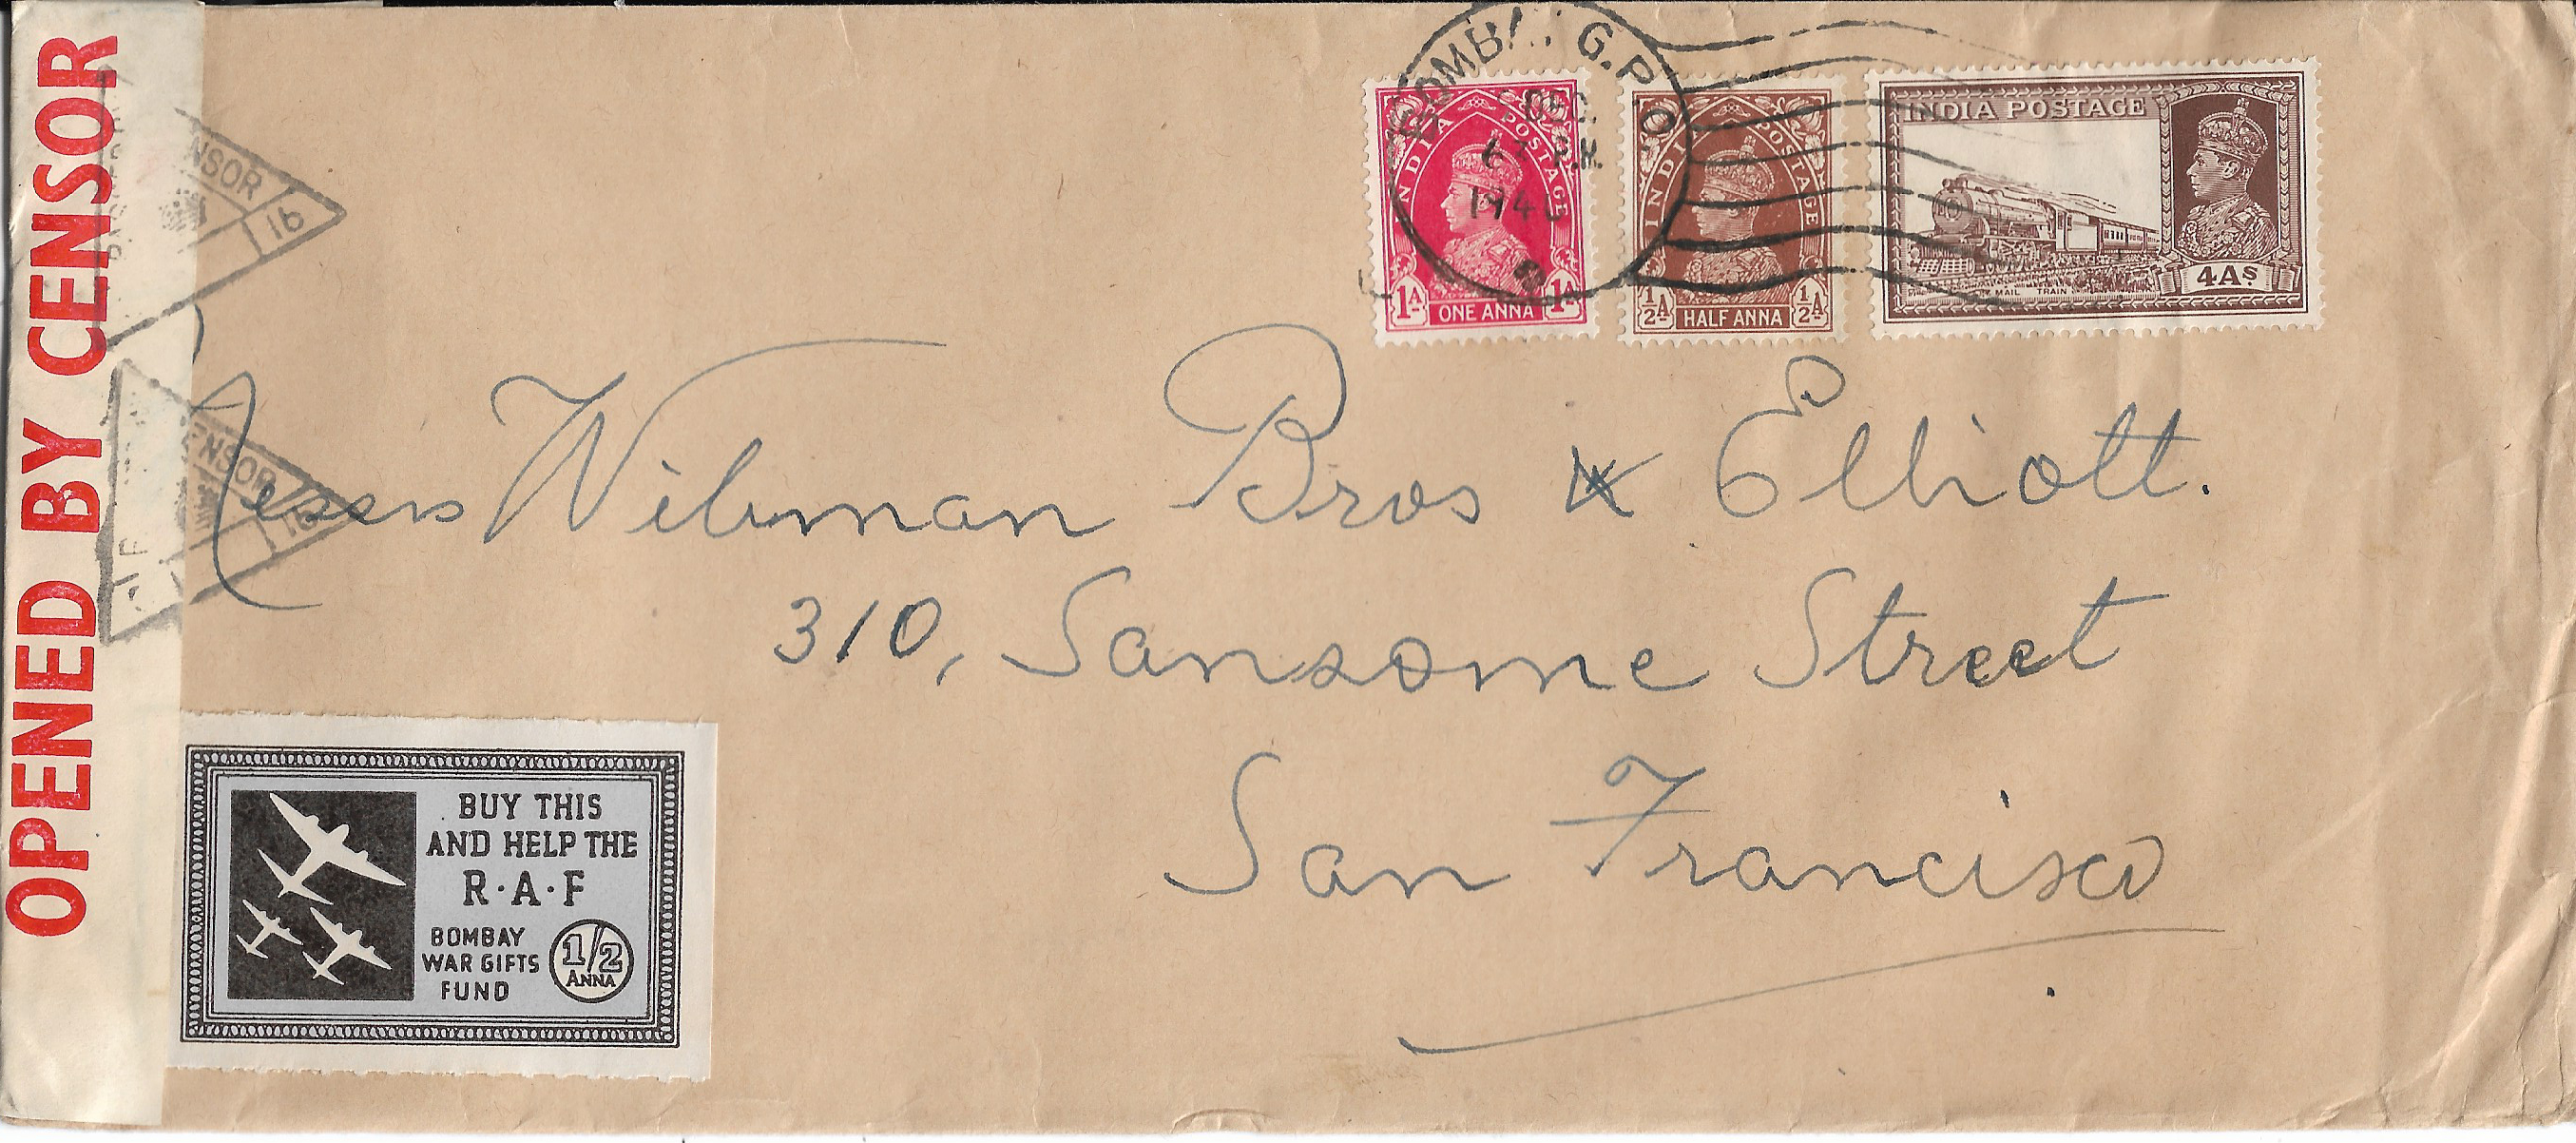 OPENED BY CENSOR
NSOR
16
ENSOR
16
BOMBA G.P.O.
DEC.
P.M.
1940
INDIA POSTAGE
1A ONE ANNA 1A
INDIA POSTAGE
½A HALF ANNA ½A
INDIA POSTAGE
MAIL TRAIN
4AS
Messrs Wilman Bros & Elliott.
310, Sansome Street
San Francisco
BUY THIS
AND HELP THE
R·A·F
BOMBAY
WAR GIFTS
FUND
1/2
ANNA